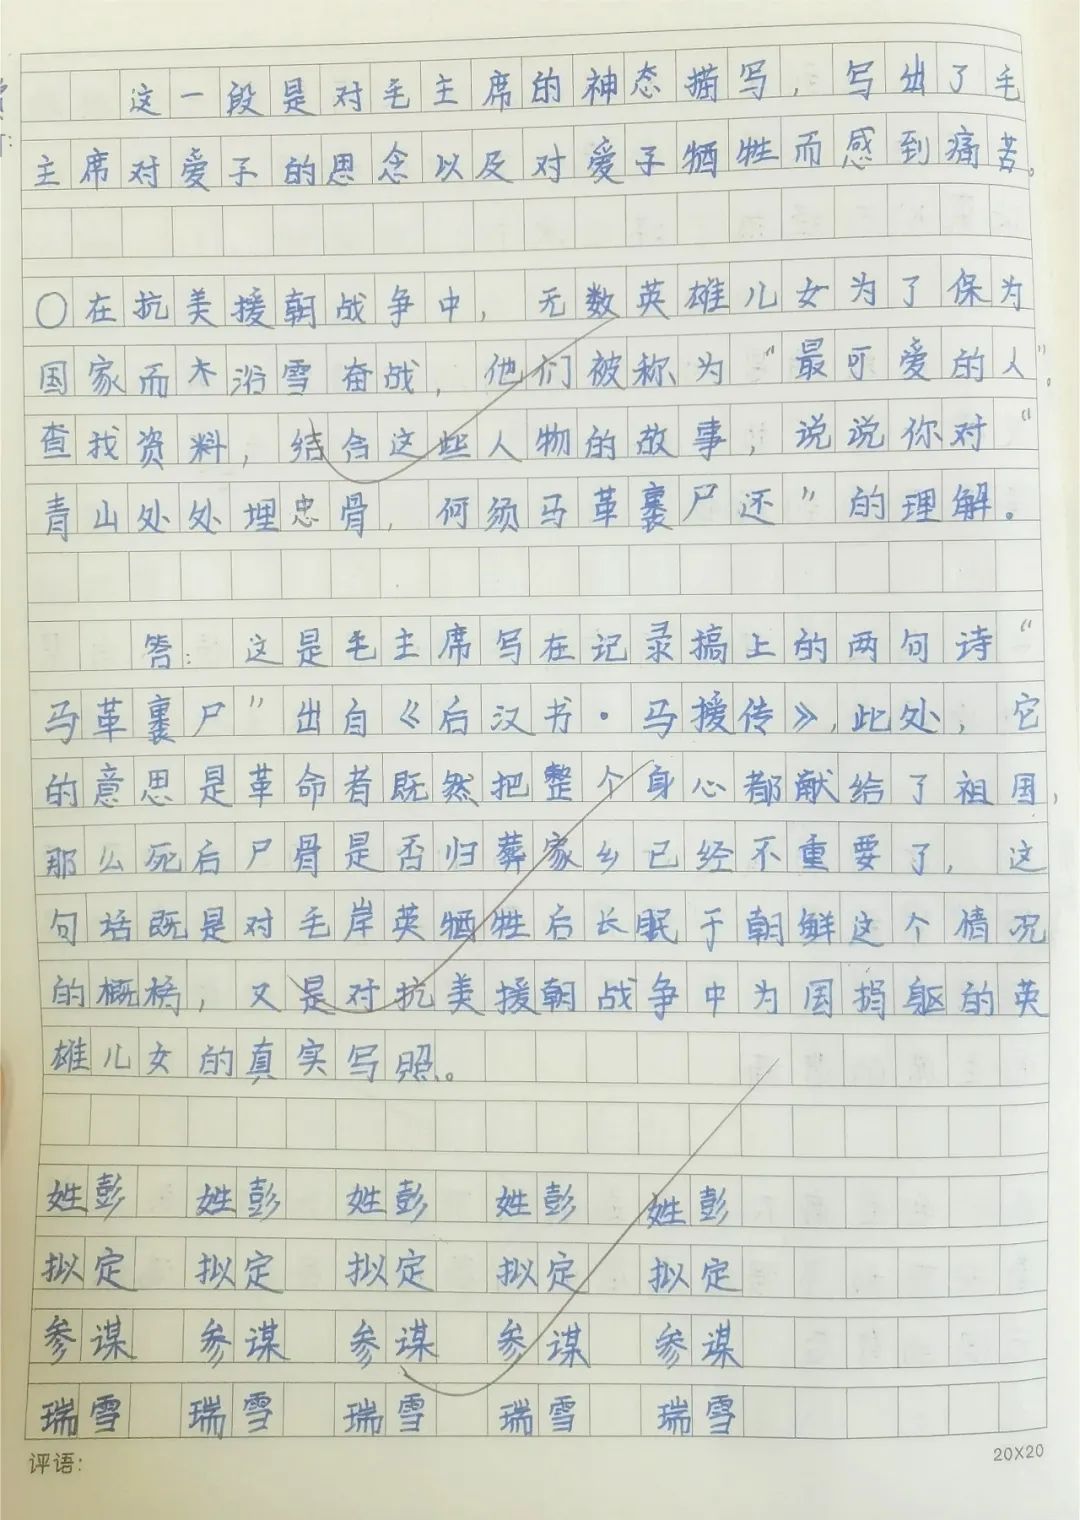 这一段是对毛主席的神态描写，写出了毛
主席对爱子的思念以及对爱子牺牲而感到痛苦。
〇在抗美援朝战争中，无数英雄儿女为了保为
国家而木浴雪奋战，他们被称为“最可爱的人”。
查找资料，结合这些人物的故事，说说你对“
青山处处埋忠骨，何须马革裹尸还”的理解。
答：这是毛主席写在记录搞上的两句诗“
马革裹尸”出自《后汉书·马援传》，此处，它
的意思是革命者既然把整个身心都献给了祖国，
那么死后尸骨是否归葬家乡已经不重要了，这
句话既是对毛岸英牺牲后长眠于朝鲜这个情况
的概括，又是对抗美援朝战争中为国捐躯的英
雄儿女的真实写照。
姓彭 姓彭 姓彭 姓彭 姓彭
拟定 拟定 拟定 拟定 拟定
参谋 参谋 参谋 参谋 参谋
瑞雪 瑞雪 瑞雪 瑞雪 瑞雪
评语：
20X20